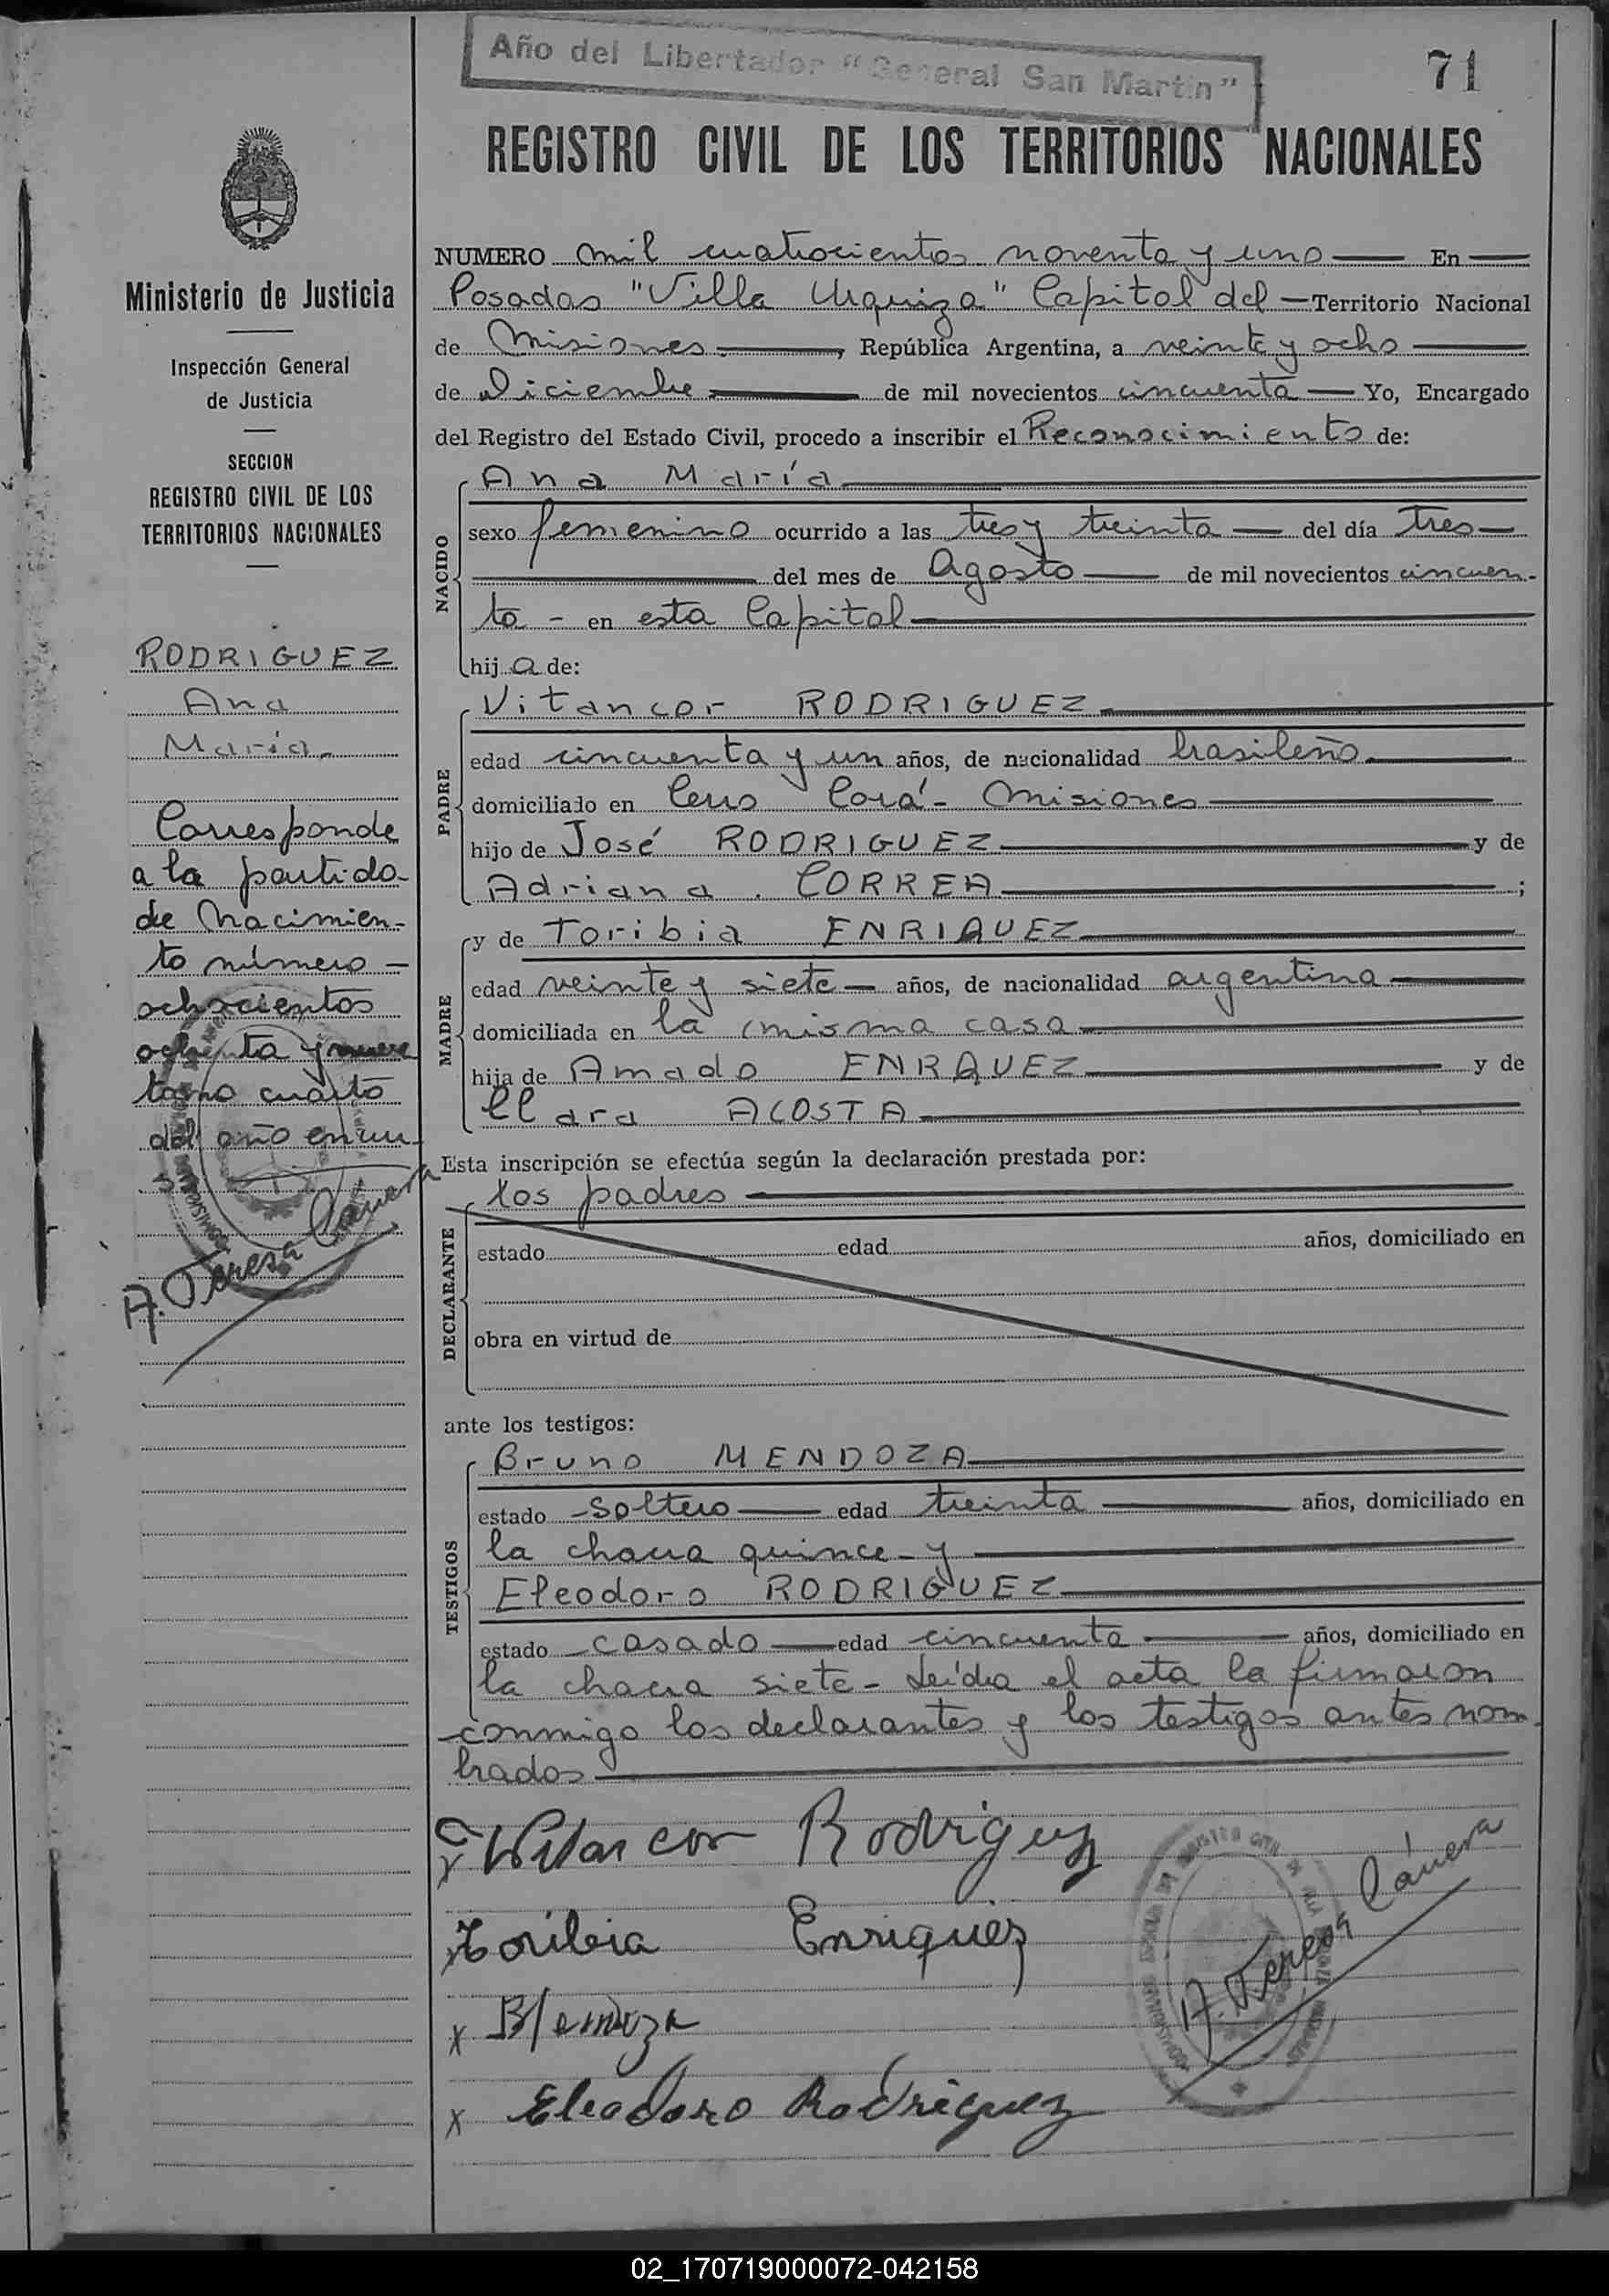 Año del Libertador "General San Martín"
71
REGISTRO CIVIL DE LOS TERRITORIOS NACIONALES
Ministerio de Justicia
Inspección General
de Justicia
SECCION
REGISTRO CIVIL DE LOS
TERRITORIOS NACIONALES
RODRIGUEZ
Ana
María
Corresponde
a la partida
de Nacimien-
to número -
ochocientos
ochenta y nueve
tomo cuarto
del año en cur
so
A. Teresa Cánera
NUMERO mil cuatrocientos noventa y uno En
Posadas "Villa Urquiza" Capital del Territorio Nacional
de Misiones, República Argentina, a veinte y ocho
de Diciembre de mil novecientos cincuenta Yo, Encargado
del Registro del Estado Civil, procedo a inscribir el Reconocimiento de:
NACIDO
Ana María
sexo femenino ocurrido a las tres y treinta del día tres
del mes de Agosto de mil novecientos cincuen-
ta - en esta Capital
hij a de:
PADRE
Vitancor RODRIGUEZ
edad cincuenta y un años, de nacionalidad brasileño
domiciliado en Cerro Corá - Misiones
hijo de José RODRIGUEZ y de
Adriana CORREA ;
MADRE
y de Toribia ENRIQUEZ
edad veinte y siete años, de nacionalidad argentina
domiciliada en la misma casa
hija de Amado ENRQUEZ y de
Clara ACOSTA
Esta inscripción se efectúa según la declaración prestada por:
DECLARANTE
los padres
estado edad años, domiciliado en
obra en virtud de
ante los testigos:
TESTIGOS
Bruno MENDOZA
estado soltero edad treinta años, domiciliado en
la chacra quince - y
Eleodoro RODRIGUEZ
estado casado edad cincuenta años, domiciliado en
la chacra siete - Leída el acta la firmaron
conmigo los declarantes y los testigos antes nom-
brados
Vitancor Rodriguez
x Toribia Enriquez
x BMendoza
x Eleodoro Rodriguez
A. Teresa Cánera
02_170719000072-042158